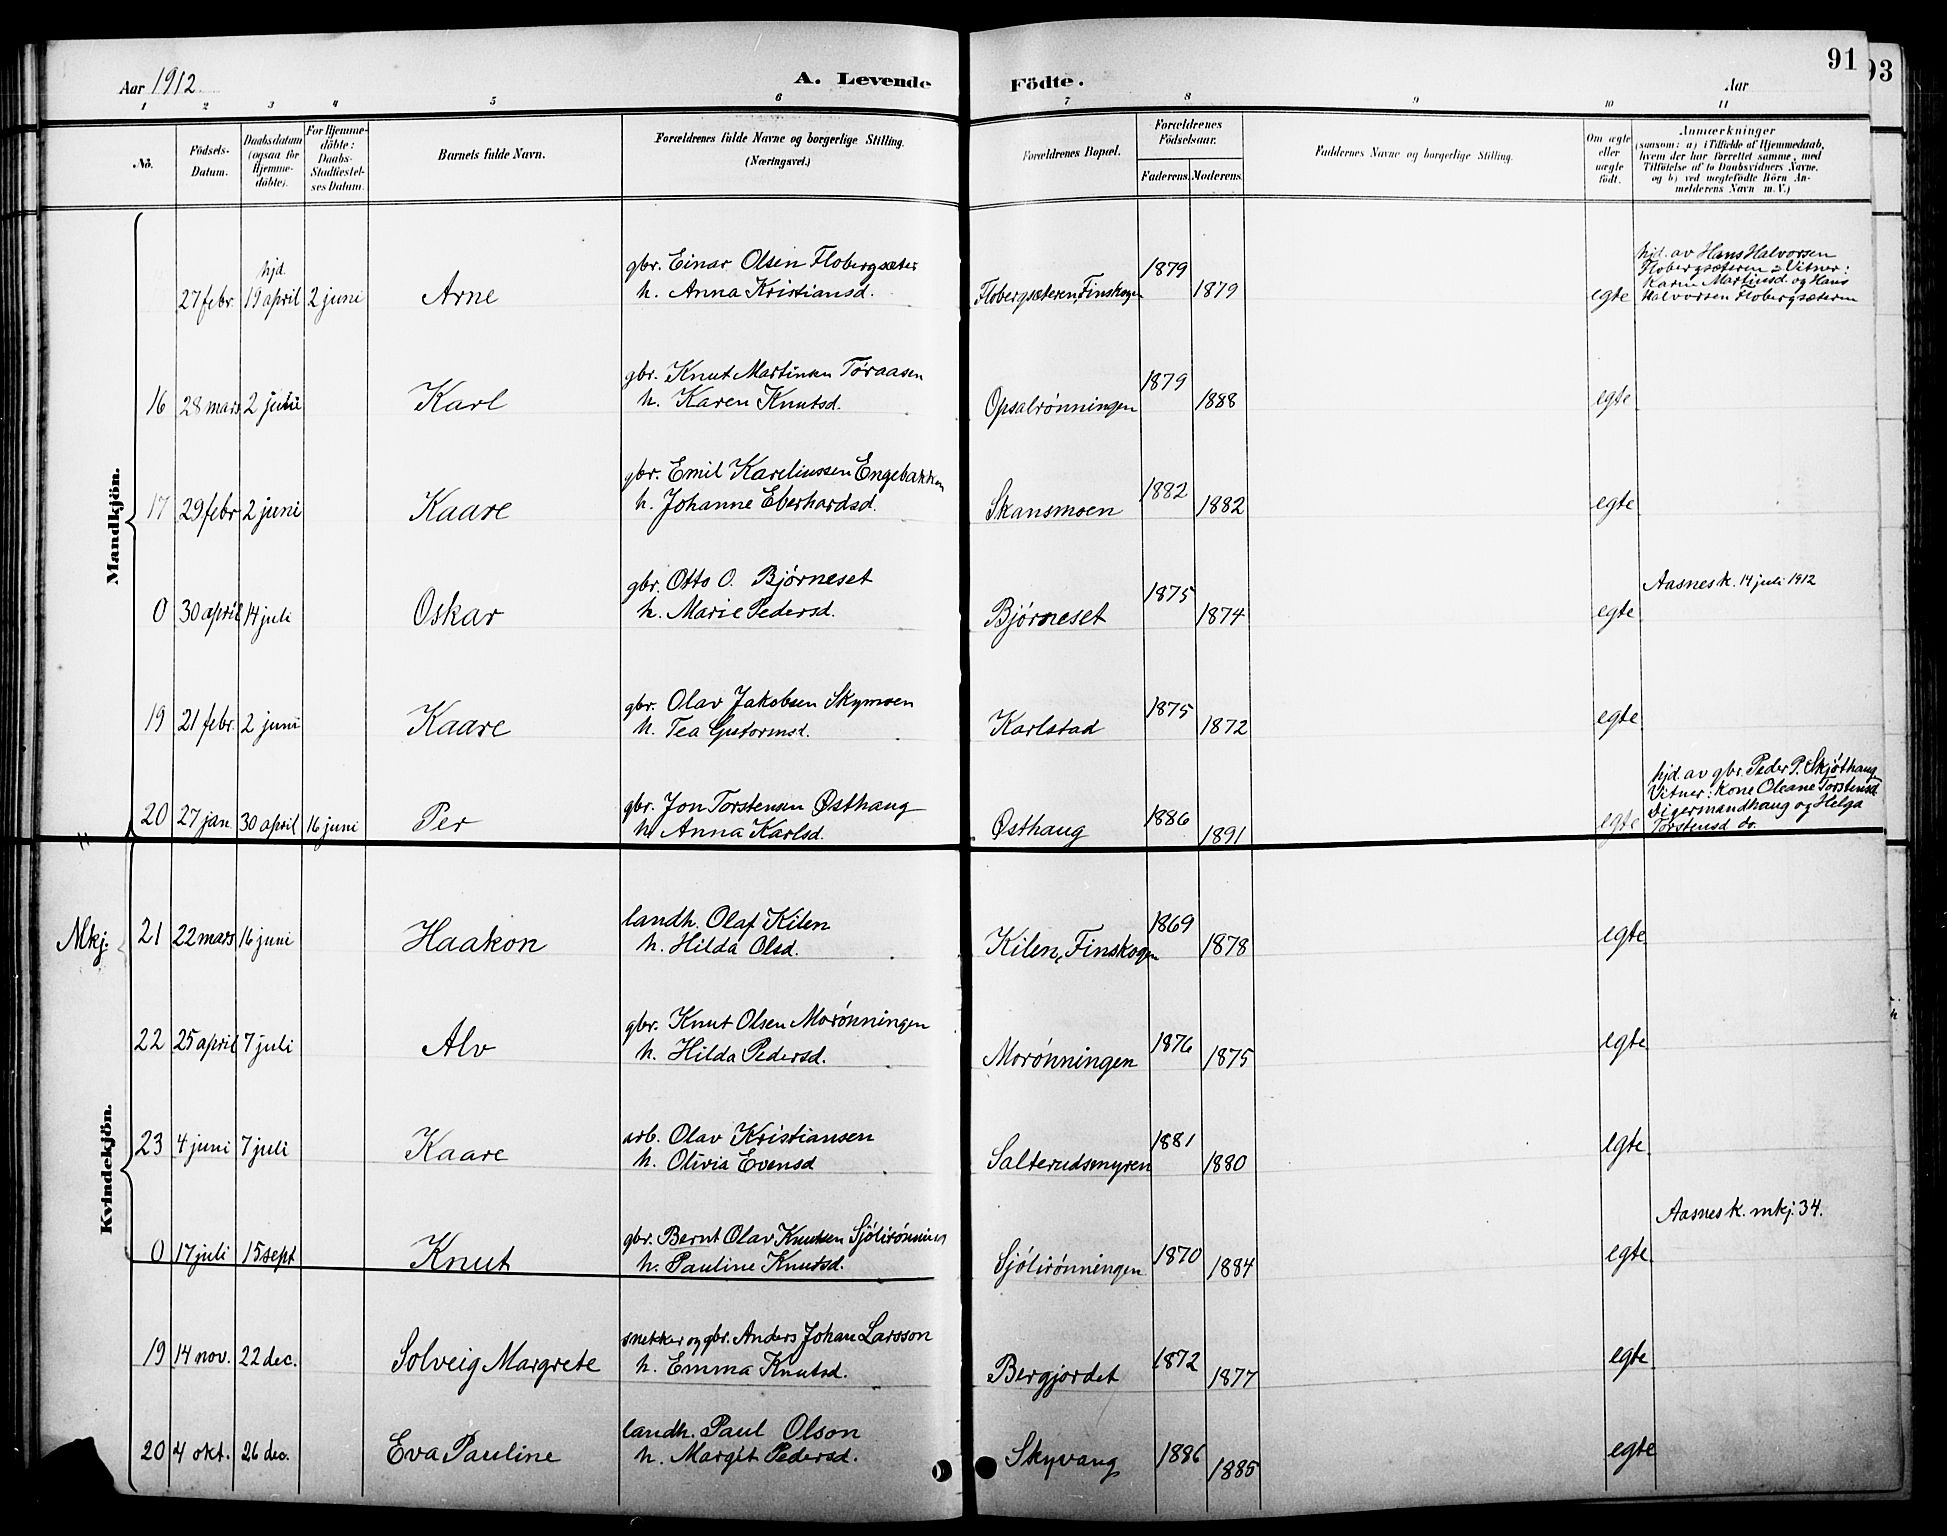 Aar 1912.
A. Levende
Födte.
Aar
91
93
1 2 3 4 5 6 7 8 9 10 11
No.
Födsels-
Datum.
Daabsdatum
(ogsaa for
Hjemme-
döbte).
For Hjemme-
döbte:
Daabs-
Stadfæstel-
ses Datum.
Barnets fulde Navn.
Forældrenes fulde Navne og borgerlige Stilling.
(Næringsvei.)
Forældrenes Bopæl.
Forældrenes
Födselsaar.
Faderens. Moderens.
Faddernes Navne og borgerlige Stilling.
Om ægte
eller
uægte
födt.
Anmærkninger
(saasom: a) i Tilfælde af Hjemmedaab,
hvem der har forrettet samme, med
Tilföielse af to Daabsvidners Navne,
og b) ved uægtefödte Börn An-
melderens Navn m. V.)
Mandkjön.
27 febr. hjd. 19 april 2 juni Arne
gbr. Einar Olsen Flobergsæter
h. Anna Kristiansd.
Flobergsæteren, Finskogen 1879 1879 egte
hjd. av Hans Halvorsen
Flobergsæteren Vitner:
Karen Martinsd. og Hans
Halvorsen Flobergsæteren
16 28 mars 2 juni Karl
gbr. Knut Martinsen Toraasen
h. Karen Knutsd.
Opsalrønningen 1879 1888 egte
17 29 febr 2 juni Kaare
gbr. Emil Kareliussen Engebakken
h. Johanne Eberhardsd.
Skansmoen 1882 1882 egte
0 30 april 14 juli Oskar
gbr. Otto O. Bjørneset
h. Marie Pedersd.
Bjørneset 1875 1874 egte
Aasnes k. 14 juli 1912
19 21 febr. 2 juni Kaare
gbr. Olav Jakobsen Skymoen
h. Tea Gutormsd.
Karlstad 1875 1872 egte
20 27 jan. 30 april 16 juni Per
gbr. Jon Torstensen Østhaug
h. Anna Karlsd.
Østhaug 1886 1891 egte
hjd. av gbr. Peder P. Skjøthaug
Vitner: Kone Oleane Torstensd.
Digermandhaug og Helga
Torstensd. do.
Mkj.
21 22 mars 16 juni Haakon
landh. Olaf Kilen
h. Hilda Olsd.
Kilen, Finskogen 1869 1878 egte
22 25 april 7 juli Alv
gbr. Knut Olsen Morønningen
h. Hilda Pedersd.
Morønningen 1876 1875 egte
Kvindekjön.
23 4 juni 7 juli Kaare
arb. Olav Kristiansen
h. Olivia Evensd
Salterudsmyren 1881 1880 egte
0 17 juli 15 sept Knut
gbr. Bernt Olav Knutsen Sjølirønning
h. Pauline Knutsd.
Sjølirønningen 1870 1884 egte
Aasnes k. mkj. 34.
19 14 nov. 22 dec. Solveig Margrete
snekker og gbr. Anders Johan Larsson
h. Emma Knutsd.
Bergjordet 1872 1877 egte
20 4 okt. 26 dec. Eva Pauline
landh. Paul Olson
h. Margit Pedersd.
Skyvang 1886 1885 egte